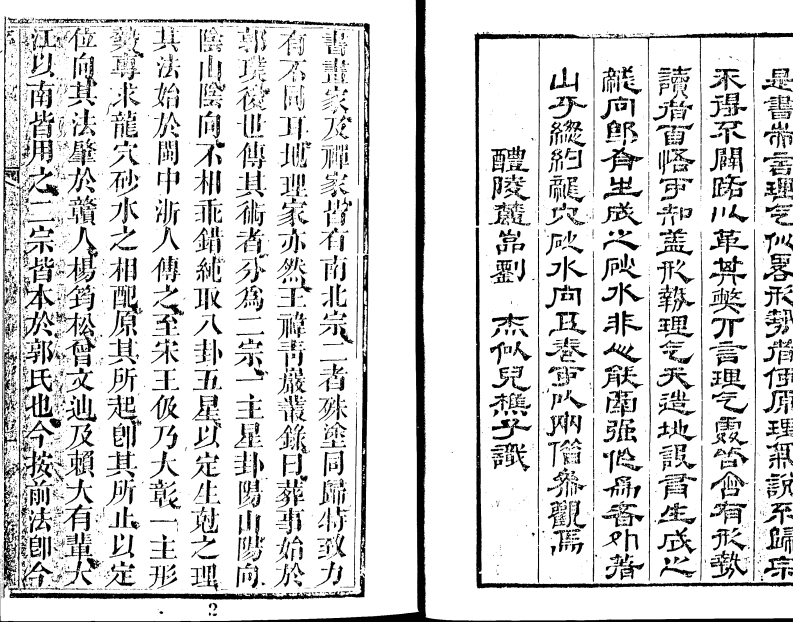 是書專言理气似畧形勢者但原理無說不歸宗
不得不闢路以革其獘方言理气處皆含有形勢
讀者宜悟而知盖形勢理气天造地設書生成之
龍向郎有生成之砂水非必能勉强他為者外著
山于總約龍穴砂水向五卷可以兩備參觀焉
醴陵麓嵩劉 杰似兒樵子識
書畫家及禪家皆有南北宗二者殊塗同歸特致力
有不同耳地理家亦然王禕青巖叢錄曰葬事始於
郭璞後世傳其術者分為二宗一主星卦陽山陽向
陰山陰向不相乖錯純取八卦五星以定生尅之理
其法始於閩中浙人傳之至宋王伋乃大彰一主形
勢專求龍穴砂水之相配原其所起卽其所止以定
位向其法肇於贛人楊筠松曾文辿及賴大有輩大
江以南皆用之二宗皆本於郭氏也今按前法卽今
2